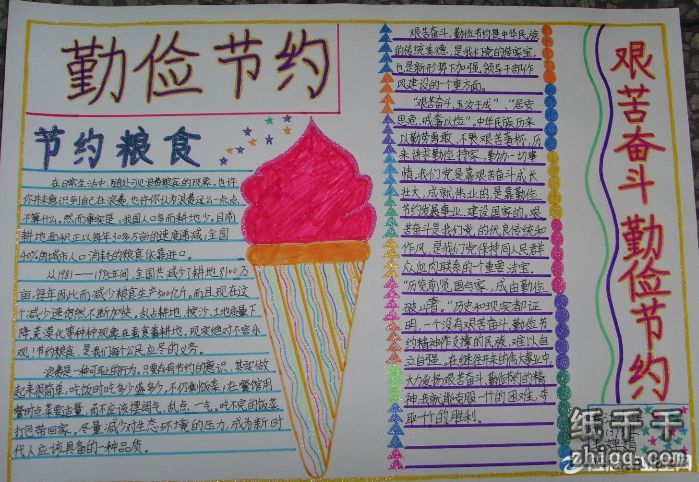 勤俭节约
节约粮食
在日常生活中，随处可见浪费粮食的现象。也许
你并未意识到自己在浪费，也许你认为浪费这么一点点
不算什么。然而事实是，我国人口多而耕地少，目前
耕地面积正以每年30多万亩的速度递减，全国
40%的城市人口消耗的粮食依靠进口。
从1981—1985年间，全国共减少了耕地8100万
亩，每年因此而减少粮食生产500亿斤。而且现在这
个减少速度依然不断加快。乱占耕地、挖沙、土地质量下
降、荒漠化等种种现象在蚕食着耕地。现实绝对不容乐
观！节约粮食，是我们每个公民应尽的义务。
浪费是一种可耻的行为。只要有节约的意识，其实做
起来很简单：吃饭时吃多少盛多少，不扔剩饭菜；在餐馆用
餐时点菜要适量，而不应该摆阔气，乱点一气。吃不完的饭菜
打包带回家。尽量减少对生态环境的压力，成为新时
代人应该具备的一种品质。
艰苦奋斗，勤俭节约是中华民族
的传统美德，是我们党的传家宝，
也是新形势下加强领导干部作
风建设的一个重方面。
“艰苦奋斗，玉汝于成”，“居安
思危，戒奢以俭”。中华民族历来
以勤劳勇敢、不畏艰苦著称，历
来讲求勤俭持家、勤俭办一切事
情。我们党是靠艰苦奋斗成长
壮大、成就伟业的，是靠勤俭
节约发展事业、建设国家的。艰
苦奋斗是我们党的优良传统和
作风，是我们党保持同人民群
众血肉联系的一个重要法宝。
“历览前贤国与家，成由勤俭
破由奢。”历史和现实都证
明，一个没有艰苦奋斗、勤俭节
约精神作支撑的民族，难以自
立自强。在继往开来的伟大事业中，
大力发扬艰苦奋斗、勤俭节约的精
神，我就能克服一个的困难，夺
取一个的胜利。
艰苦奋斗 勤俭节约
纸千千
zhiqq.com